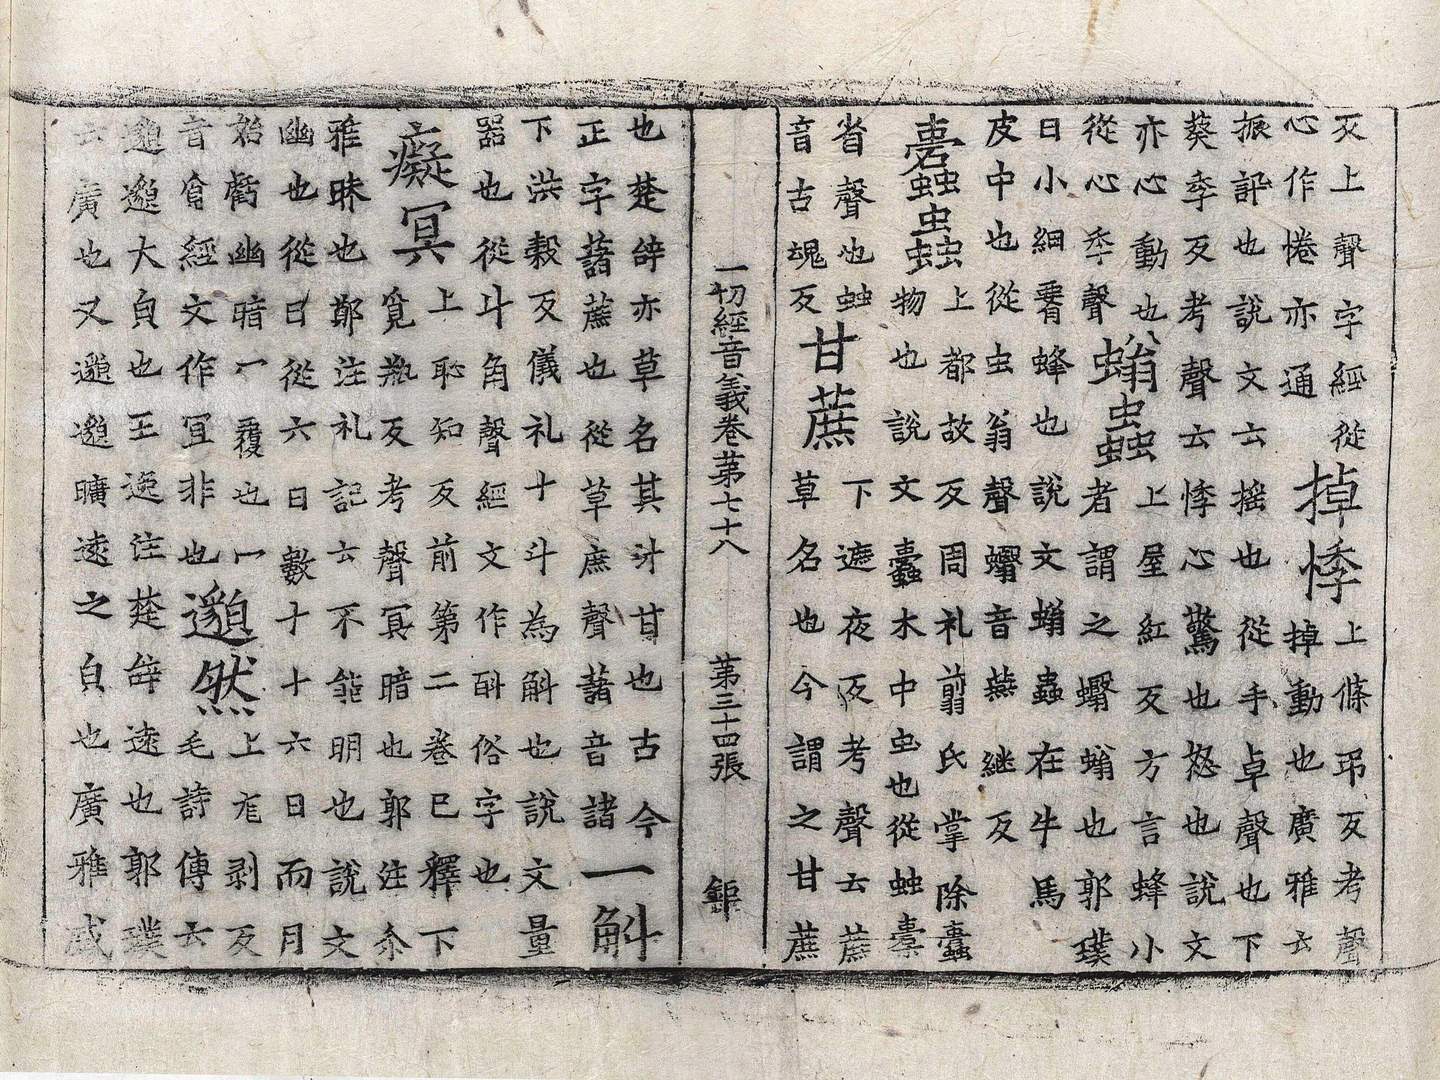 反上聲字經從
心作惓亦通
掉悸
上條弔反考聲
掉動也廣雅云
振訊也說文云搖也從手卓聲也下
葵季反考聲云悸心驚也怒也說文
亦心動也
從心季聲
螉蟲
上屋紅反方言蜂小
者謂之蠮螉也郭璞
曰小細𦝫蜂也說文螉蟲在牛馬
皮中也從虫翁聲蠮音燕繼反
蠹蟲
上都故反周礼翦氏掌除蠹
物也說文蠹木中虫也從䖵橐
省聲也䖵
音古魂反
甘蔗
下遮夜反考聲云蔗
草名也今謂之甘蔗
一切經音義卷第七十八 第三十四張 鉅
也楚辝亦草名其汁甘也古今
正字藷蔗也從草庶聲藷音諸
一斛
下洪穀反儀礼十斗為斛也說文量
器也從斗角聲經文作䣱俗字也
癡冥
上恥知反前第二卷已釋下
覓瓶反考聲冥暗也郭注尒
雅昧也鄭注礼記云不能明也說文
幽也從日從六日數十十六日而月
始虧幽暗冖覆也冖
音覓經文作冝非也
邈然
上尨剥反
毛詩傳云
邈邈大皃也王逸注楚辝遠也郭璞
云廣也又邈邈曠遠之皃也廣雅或